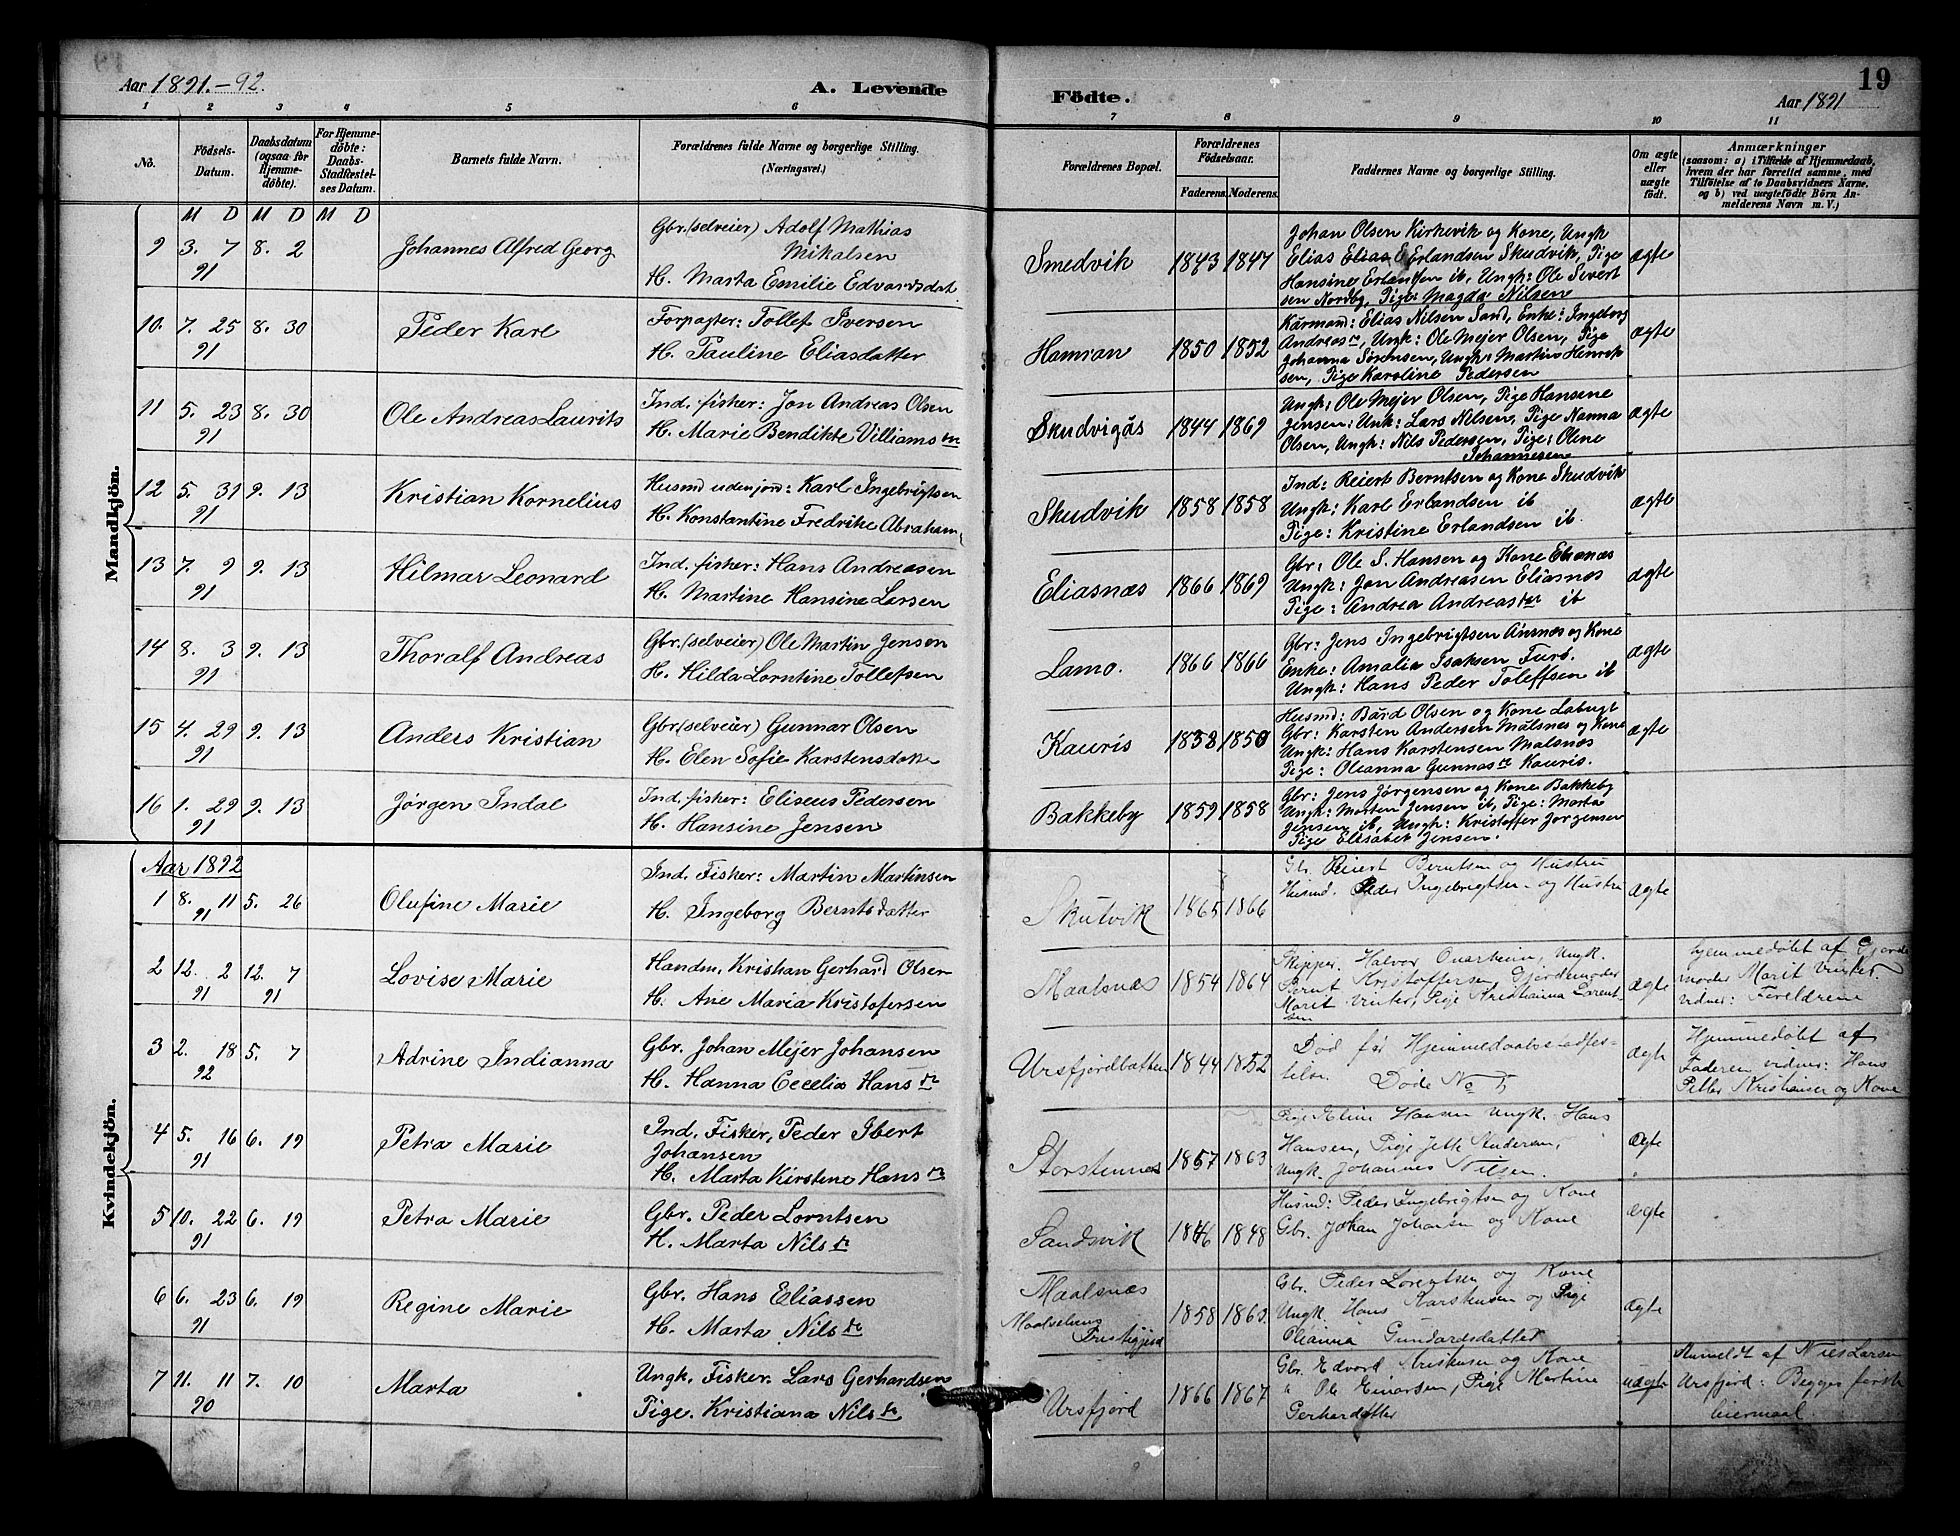 Aar 1891.-92.
A. Levende
Födte.
19
Aar 1891
1 2 3 4 5 6 7 8 9 10 11
No.
Födsels-Datum.
Daabsdatum (ogsaa for Hjemmedöbte).
For Hjemmedöbte: Daabs-Stadfæstelses Datum.
Barnets fulde Navn.
Forældrenes fulde Navne og borgerlige Stilling.
(Næringsvei.)
Forældrenes Bopæl.
Forældrenes Födselsaar.
Faderens. Moderens.
Faddernes Navne og borgerlige Stilling.
Om ægte eller uægte födt.
Anmærkninger
(saasom: a) i Tilfælde af Hjemmedaab, hvem der har forrettet samme, med Tilföielse af to Daabsvidners Navne, og b) ved uægtefödte Börn Anmelderens Navn m. V.)
M D M D M D
Mandkjön.
9 3. 7 91 8. 2
Johannes Alfred Georg
Gbr. (selveier) Adolf Mathias
Mikalsen
H. Marta Emilie Edvardsdat.
Smedvik 1843 1847
Johan Olsen Kirkevik og Kone, Ungk
Elias Elias E Erlandsen Skudvik, Pige
Hansine Erlandsen ib, Ungk: Ole Sivert
sen Nordby, Pige: Magda Nilsen
ægte
10. 7. 25 91 8. 30
Peder Karl
Forpagter: Tollef Iversen
H. Pauline Eliasdatter
Hamran 1850 1852
Kårmand: Elias Nilsen Sand, Enke: Ingeborg
Andreasdr, Ungk: Ole Mejer Olsen, Pige
Johanna Sörensen, Ungk: Martin Henrik
sen, Pige Karoline Pedersen
ægte
11 5. 23 91 8. 30
Ole Andreas Laurits
Ind. fisker: Jon Andreas Olsen
H. Marie Bendikte Villiams dr
Skudvigås 1844 1869
Ungk: Ole Mejer Olsen, Pige Hansene
Jensen: Unk: Lars Nilsen, Pige Nanna
Olsen, Ungk: Nils Pedersen, Pige: Oline
Johannesen
ægte
12 5. 31 91 9. 13
Kristian Kornelius
Husmd udenjord: Karl Ingebrigtsen
H. Konstantine Fredrike Abraham
Skudvik 1858 1858
Ind: Reiert Berntsen og Kone Skudvik
Ungk: Karl Erlandsen ib
Pige: Kristine Erlandsen ib.
ægte
13 7. 9 91 9. 13
Hilmar Leonard
Ind. fisker: Hans Andreasen
H. Martine Hansine Larsen
Eliasnæs 1866 1869
Gbr: Ole S. Hansen og Kone Eliasnæs
Ungk: Jon Andreasen Eliasnæs
Pige: Andrea Andreasdr ib
ægte
14 8. 3 91 9. 13
Thoralf Andreas
Gbr. (selveier) Ole Martin Jensen
H. Hilda Lorntine Tollefsen
Lamo. 1866 1866
Gbr: Jens Ingebrigtsen Ansnæs og Kone
Enke: Amalia Isaksen Furö.
Ungk: Hans Peder Toleffsen ib
ægte
15 4. 29 91 9. 13
Anders Kristian
Gbr. (selveier) Gunnar Olsen
H. Elen Sofie Karstensdatte
Kauris 1838 1850
Husmd: Bård Olsen og Kone Labugt
Gbr: Karsten Andersen Målsnes og Kone
Ungk: Hans Karstensen Malsnæs
Pige: Oleanna Gunnasdr Kauris.
ægte
16 1. 29 91 9. 13
Jørgen Indal
Ind. fisker: Eliseus Pedersen
H. Hansine Jensen
Bakkeby 1859 1858
Gbr: Jens Jørgensen og Kone Bakkeby
Ungk: Morten Jensen ib, Pige: Marta
Jensen ib, Ungk: Kristoffer Jørgensen
Pige Elisabet Jensen.
ægte
Kvindekjön.
Aar 1892
1 8. 11 91 5. 26
Olufine Marie
Ind. Fisker: Martin Martinsen
H. Ingeborg Berntsdatter
Skutvik 1865 1866
Gb. Reiert Berntsen og Hustru
Husmd. Peder Ingebrigtsen og Hustru
ægte
2 12. 2 91 12. 7 91
Lovise Marie
Handm. Kristian Gerhard Olsen
H. Ane Maria Kristofersen
Maalsnæs 1854 1864
Skipper. Halvor Qvarheim, Ungk.
Bernt Kristoffersen Gjordemoder
Marit Vinter, Pige Kristianna Lorent-
sen
ægte
hjemmedöbt af Gjorde
moder Marit Vinter
vidner: Foreldrene
3 2. 18 92 5. 7
Adrine Indianna
Gbr. Johan Mejer Johansen
H. Hanna Cecelia Hans dr
Ursfjordbotten 1844 1852
Död før Hjemmedaabsstadfes-
telse. Döde No 5
ægte
Hjemmedöbt af
Faderen vidner: Hans
Petter Kristiansen og Kone
4 5. 16 91 6. 19
Petra Marie
Ind. Fisker, Peder Ibert
Johansen
H. Marta Kirstine Hans dr
Storsteinnes 1857 1863
Pige Eline Hansen Ungk. Hans
Hansen, Pige Jette Andersen,
Ungk. Johannes Nilsen.
Ægte
5 10. 22 91 6. 19
Petra Marie
Gbr. Peder Lorntsen
H. Marta Nils dr
Sandsvik 1846 1848
Husmd: Peder Ingebrigtsen og Kone
Gbr. Johan Johansen og Kone
ægte
6 6. 23 91 6. 19
Regine Marie
Gbr. Hans Eliassen
H. Marta Nils dr
Maalsnæs
1858 1863.
Gbr. Peder Lorentsen og Kone
Ungk. Hans Karstensen og Pige
Oleanna Gunnarsdatter
Ægte
7 11. 11 90 7. 10
Marta
Ungk. Fisker. Lars Gerhardsen
Pige. Kristiana Nils dr
Ursfjord 1866 1867
Gbr. Edvard Kristiansen og Kone
" Ole Einarsen, Pige Martine
Gerhardatter
uægte
Anmeldt af Nils Larsen
Ursfjord: Begges første
leiermaal.